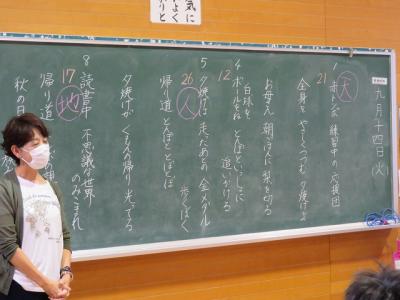 気に
よく
りと
九月十四日(火)
天
1 赤トンボ 練習中の 応援団
21
全身を やさしくつつむ 夕焼けよ
お母さん 朝ごはんに 梨を切る
白球を
4 ボールをね とんぼといっしょに 追いかける
12
5 夕焼けは 走ったあとの 金メダル
26
人
帰り道 とんぼ 歩くぼく
夕焼けが 帰り 光ってる
8 読書中 不思議な世界 のみこまれ
17
地
帰り道
秋の日